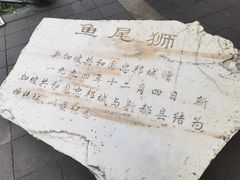 鱼尾狮
新加坡共和国忠邦城赠
一九九四年十二月四日新
加坡共和国忠邦城与新都县结为
纪念